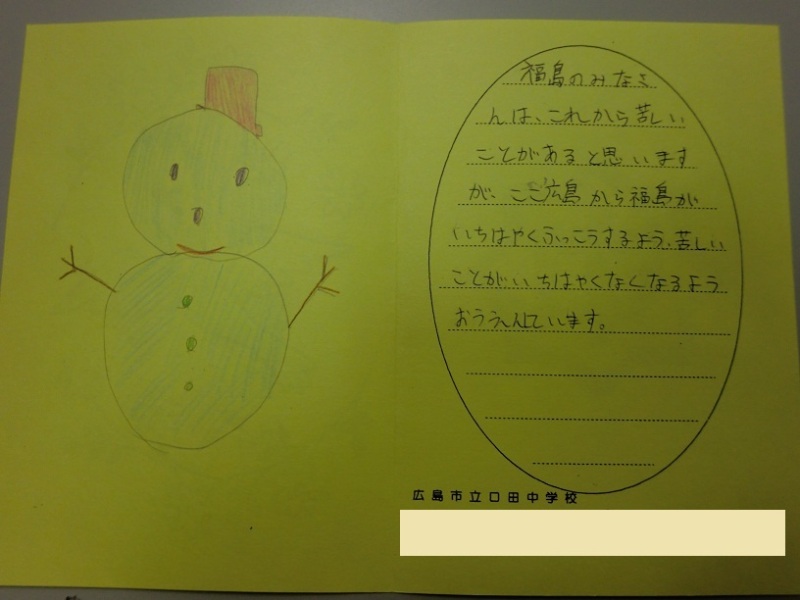 福島のみなさ
んは、これから苦しい
ことがあると思います
が、ここ広島から福島が
いちはやくふっこうするよう、苦しい
ことがいちはやくなくなるよう
おうえんしています。
広島市立口田中学校